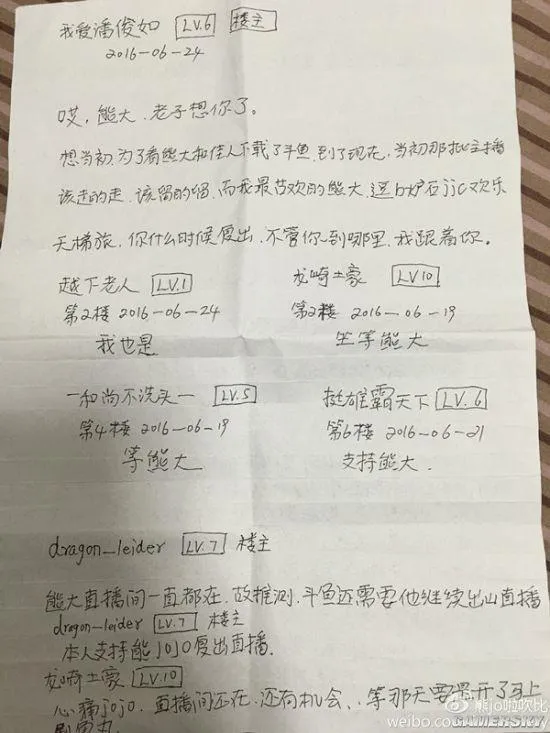 我爱潘俊如 LV.6 楼主
2016-06-24
哎,熊大,老子想你了。
想当初为了看熊大和佳人下载了斗鱼,到了现在,当初那批主播
该走的走,该留的留,而我最喜欢的熊大,还b炉石jjc欢乐
天梯旅,你什么时候复出,不管你到哪里,我跟着你。
越下老人 LV.1
第2楼 2016-06-24
我也是
龙崎土豪 LV10
第2楼 2016-06-19
坐等熊大
一和尚不洗头一 LV.5
第4楼 2016-06-19
等熊大
挺雄霸天下 LV.6
第6楼 2016-06-21
支持熊大.
dragon_leider LV.7 楼主
熊大直播间一直都在,故推测,斗鱼还需要他继续出山直播
dragon_leider LV.7 楼主
本人支持熊JOJO复出直播.
龙崎土豪 LV.10
心痛jojo,直播间还在,还有机会、等那天要是开了马上
熊jo啦吹比
weibo.co
GAMERSKY